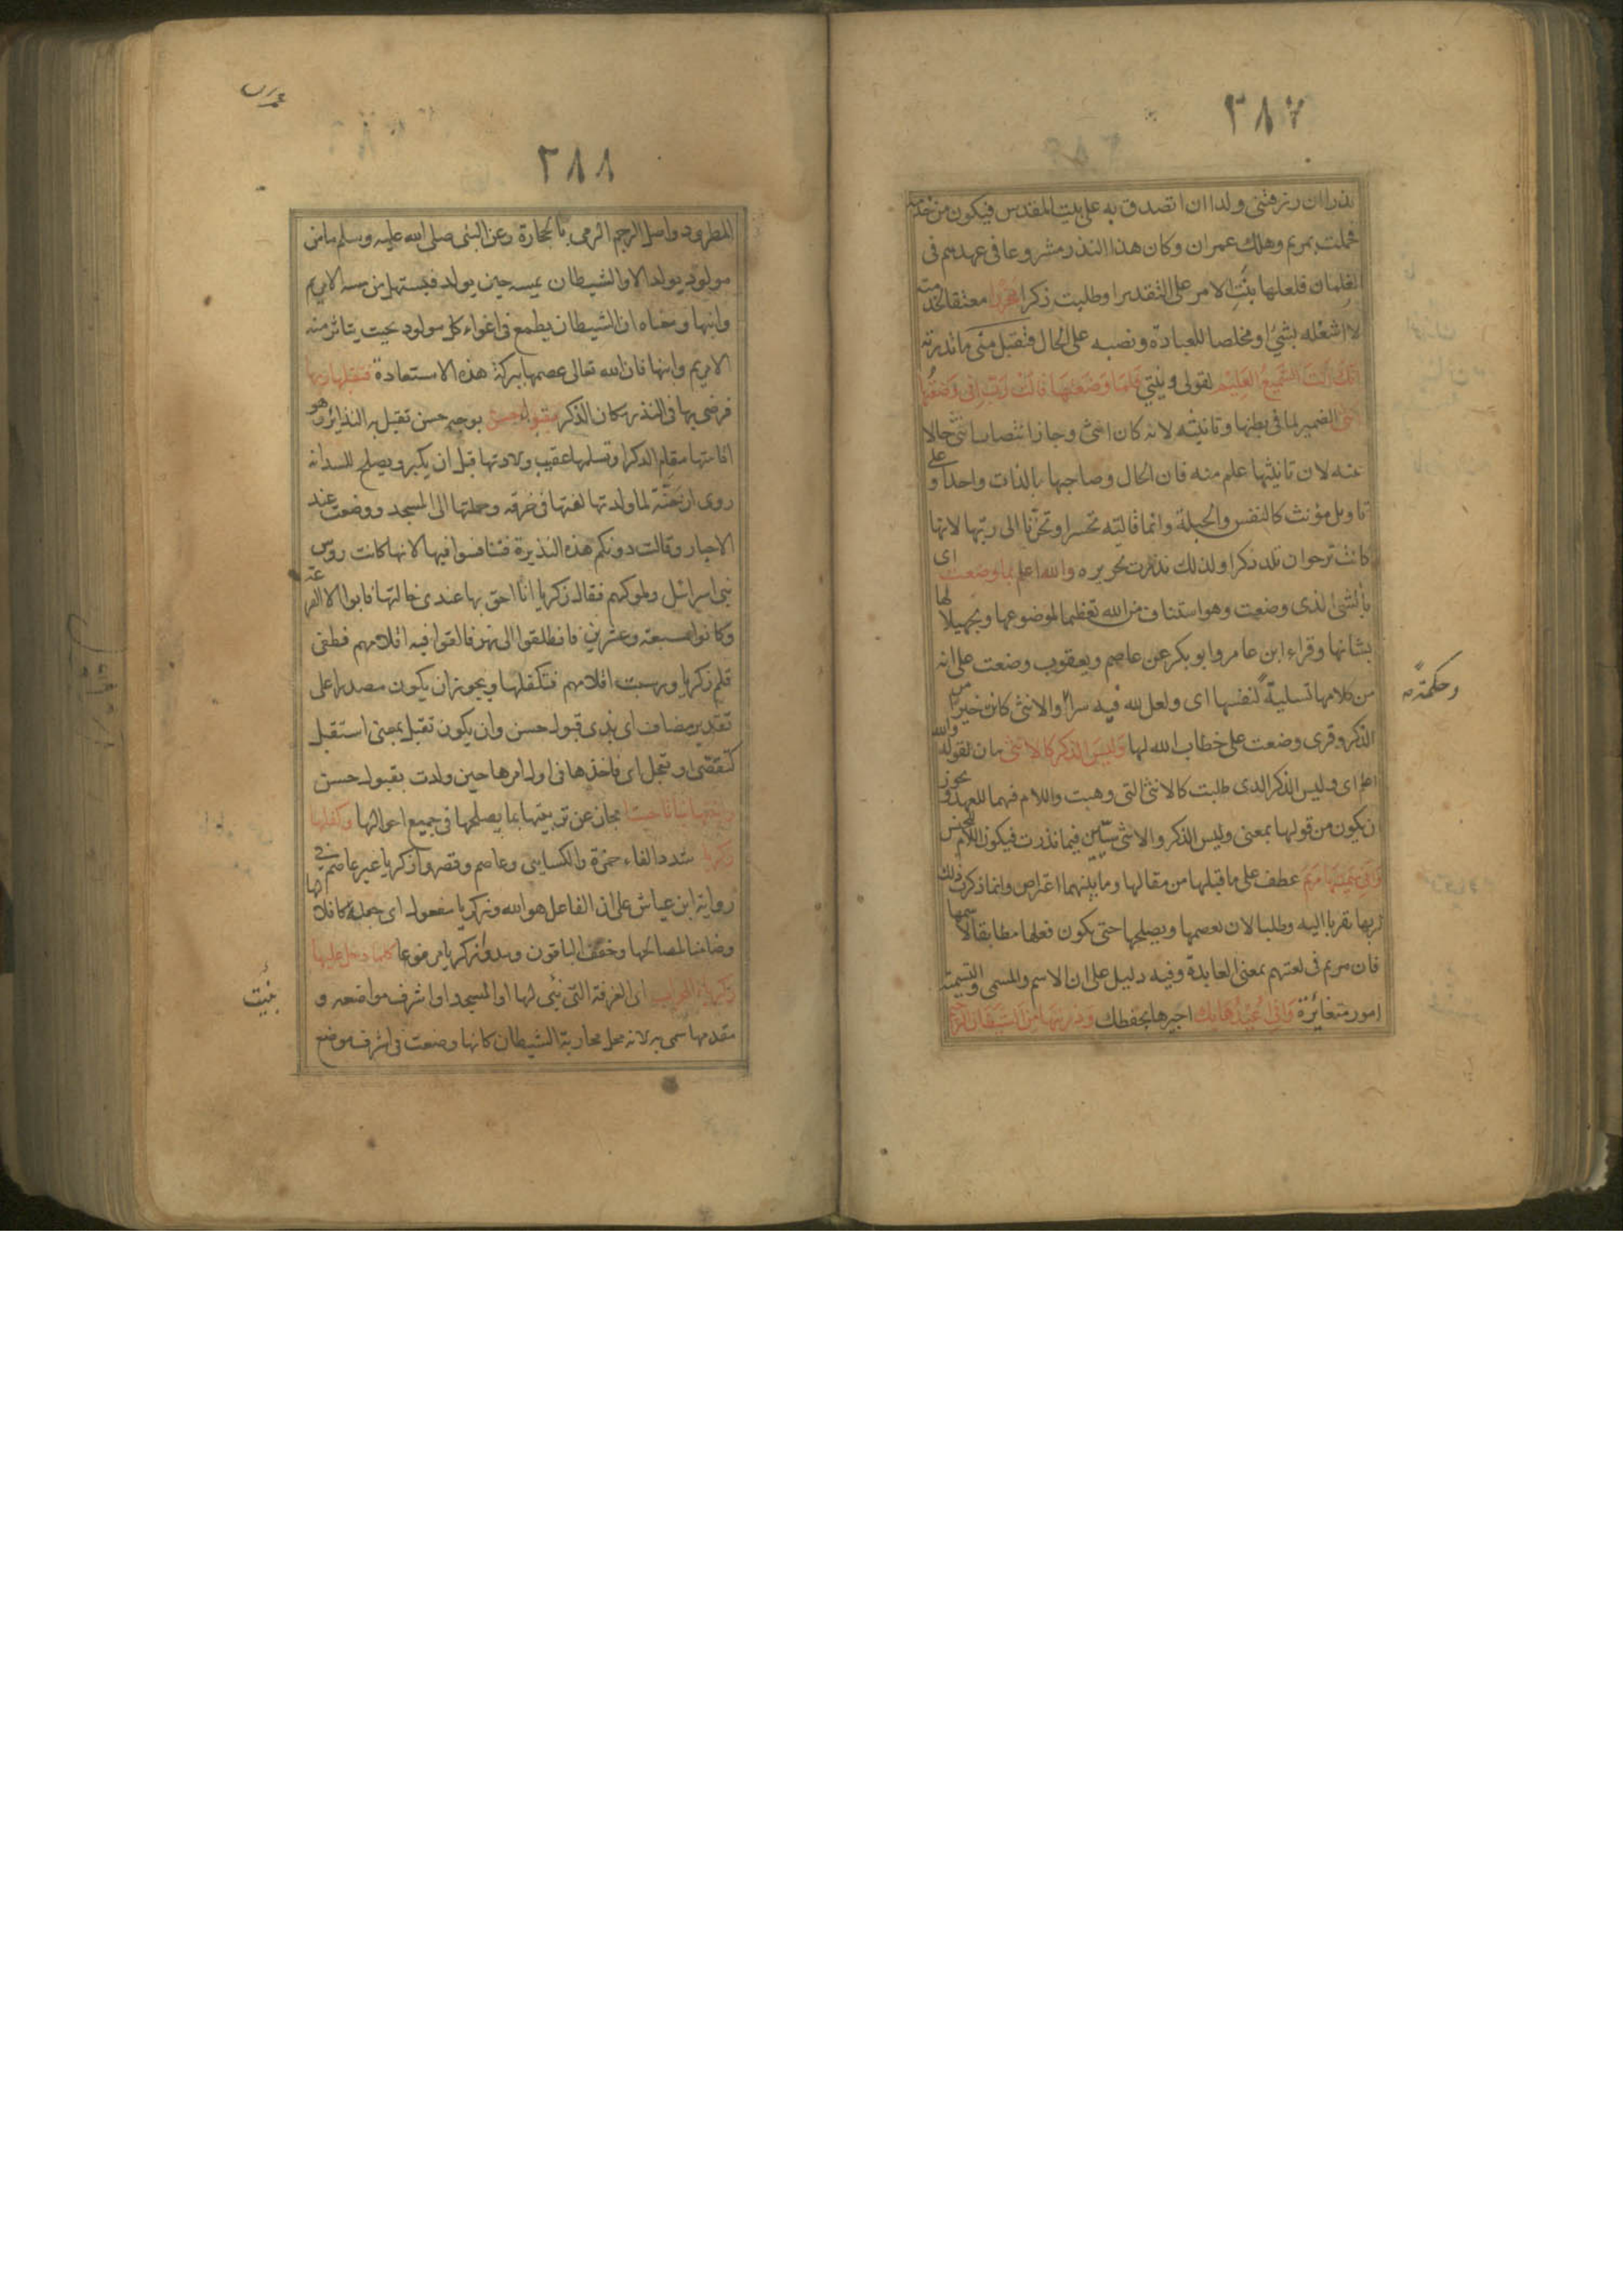 ٣٨٧
نذرا ان رزقتني ولدا ان اتصدق به على بيت المقدس فيكون من خدمته
فحملت بمريم وهلك عمران وكان هذا النذر مشروعا في عهدهم في
الغلمان فلعلها بنت الامر على التقدير او طلبت ذكرا محررا معتقا لخدمته
لا اشغله بشئ او مخلصا للعبادة ونصبه على الحال فتقبل مني ما نذرته
انك انت السميع العليم لقولي ونيتي فلما وضعتها قالت رب اني وضعتها
انثى الضمير لما في بطنها وتانيثه لانه كان انثى وجاز انتصاب انثى حالا
عنه لان تانيثها علم منه فان الحال وصاحبها بالذات واحد او على
تاويل مؤنث كالنفس والحبلة وانما قالته تحسرا وتحزنا الى ربها لانها
كانت ترجوا ان تلد ذكرا ولذلك نذرت تحريره والله اعلم بما وضعت اى
بالشئ الذى وضعت وهو استئناف من الله تعظيما لموضوعها وتجهيلا لها
بشانها وقراء ابن عامر وابو بكر عن عاصم ويعقوب وضعت على انه
من كلامها تسلية لنفسها اى ولعل لله فيه سرا والانثى كان خيرا من
وحكمة
الذكر وقرى وضعت على خطاب الله لها وليس الذكر كالانثى بيان لقوله والله
اعلم اى وليس الذكر الذى طلبت كالانثى التى وهبت واللام فيهما للعهد ويجوز
ان يكون من قولها بمعنى وليس الذكر والانثى سيين فيما نذرت فيكون اللام للجنس
واني سميتها مريم عطف على ما قبلها من مقالها وما بينهما اعتراض وانما ذكرت ذلك
لربها تقربا اليه وطلبا لان يعصمها ويصلحها حتى يكون فعلها مطابقا لاسمها
فان مريم في لغتهم بمعنى العابدة وفيه دليل على ان الاسم والمسمى والتسمية
امور متغائرة واني اعيذها بك اجيرها بحفظك وذريتها من الشيطان الرجيم
عمران
٣٨٨
المطرود واصل الرجم الرمي بالحجارة وعن النبي صلى الله عليه وسلم ما من
مولود يولد الا والشيطان يمسه حين يولد فيستهل من مسه الا مريم
وابنها ومعناه ان الشيطان يطمع في اغواء كل مولود بحيث يتاثر منه
الا مريم وابنها فان الله تعالى عصمها ببركة هذه الاستعاذة فتقبلها ربها
فرضى بها في النذر مكان الذكر بقبول حسن بوجه حسن تقبل به النذائر وهو
اقامتها مقام الذكر او تسلمها عقيب ولادتها قبل ان يكبر ويصلح للسدانة
روى ان حنة لما ولدتها لفتها في خرقة وحملتها الى المسجد ووضعت عند
الاحبار وقالت دونكم هذه النذيرة فتنافسوا فيها لانها كانت روس
بني اسرائل وملوكهم فقال زكريا انا احق بها عندى خالتها فابوا الا القرعة
وكانوا سبعة وعشرين فانطلقوا الى نهر فالقوا فيه اقلامهم فطفى
قلم زكريا ورسبت اقلامهم فتكفلها ويجوز ان يكون مصدرا على
تقدير مضاف اى بذى قبول حسن وان يكون تقبل بمعنى استقبل
كتقضى وتعجل اى فاخذها في اول امرها حين ولدت بقبول حسن
وانبتها نباتا حسنا مجاز عن تربيتها بما يصلحها في جميع احوالها وكفلها
زكريا شدد الفاء حمزة والكسايي وعاصم وقصروا زكريا غير عاصم في
رواية ابن عياش على ان الفاعل هو الله وزكريا مفعول اى جعله كافلا لها
وضامنا لمصالحها وخفف الباقون ومدوا زكريا مرفوعا كلما دخل عليها
زكريا المحراب اى الغرفة التى بنى لها او المسجد او اشرف مواضعه و
بنيت
مقدمها سمى به لانه محل محاربة الشيطان كانها وضعت في اشرف موضع